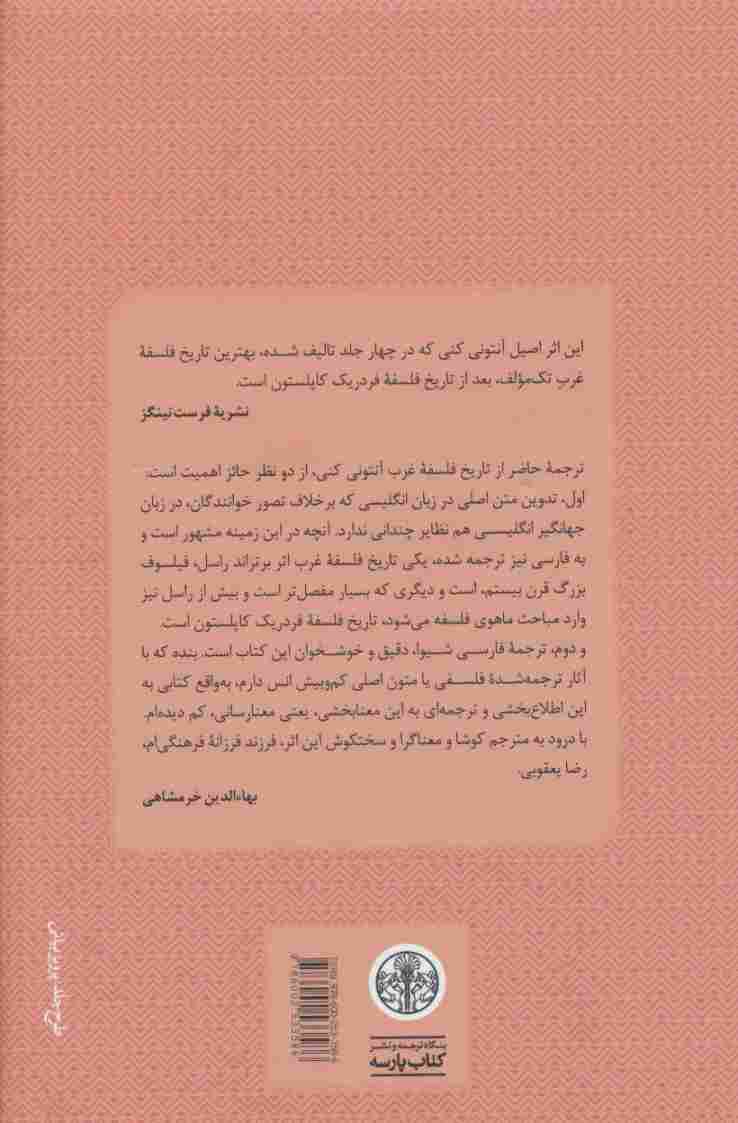 این اثر اصیل آنتونی کنی که در چهار جلد تالیف شـــده، بهترین تاریخ فلسفهٔ
غربِ تک‌مؤلف، بعد از تاریخ فلسفهٔ فردریک کاپلستون است.
نشریهٔ فرست تینگز
ترجمهٔ حاضر از تاریخ فلسفهٔ غرب آنتونی کنی، از دو نظر حائز اهمیت است.
اول، تدوین متن اصلی در زبان انگلیسی که برخلاف تصور خوانندگان، در زبان
جهانگیر انگلیســـی هم نظایر چندانی ندارد. آنچه در این زمینه مشهور است و
به فارسی نیز ترجمه شده، یکی تاریخ فلسفهٔ غرب اثر برتراند راسل، فیلـسوف
بزرگ قرن بیستم، است و دیگری که بسیار مفصل‌تر است و بیش از راسل نیز
وارد مباحث ماهوی فلسفه می‌شود، تاریخ فلسفهٔ فردریک کاپلستون است.
و دوم، ترجمهٔ فارسـی شـیوا، دقیق و خوشـخوان این کتاب است. بنده که با
آثار ترجمه‌شـدهٔ فلسـفی یا متون اصلی کم‌وبیش انس دارم، به‌واقع کتابی به
این اطلاع‌بخشی و ترجمه‌ای به این معنابخشی، یعنی معنارسانی، کم دیده‌ام.
با درود به مترجم کوشا و معناگرا و سختکوش این اثر، فرزند فرزانهٔ فرهنگی‌ام،
رضا یعقوبی.
بهاءالدین خرمشاهی
بنگاه ترجمه و نشر
کتاب پارسه
طرح جلد: